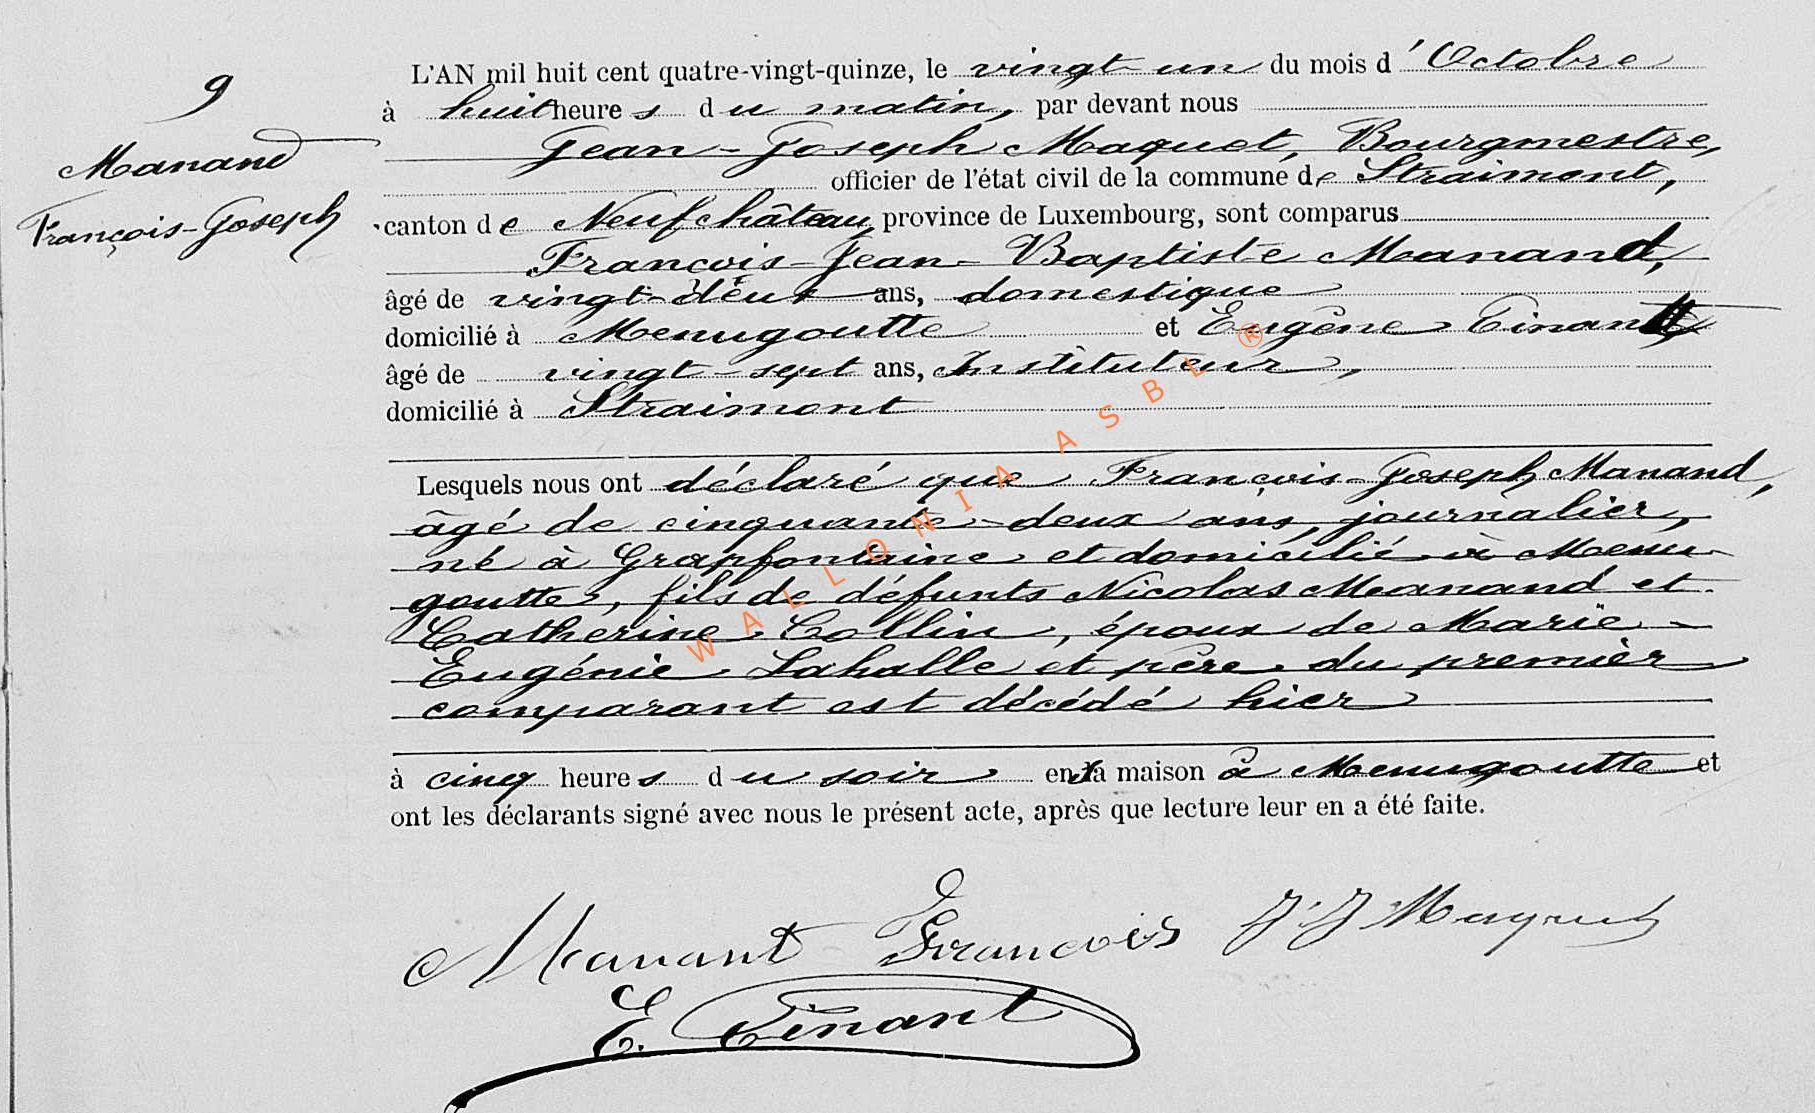 9
Manand
François-Joseph
L'AN mil huit cent quatre-vingt-quinze, le vingt un du mois d'Octobre
à huit heures du matin, par devant nous
Jean-Joseph Maquet, Bourgmestre,
officier de l'état civil de la commune de Straimont,
canton de Neufchâteau, province de Luxembourg, sont comparus
François-Jean-Baptiste Manand,
âgé de vingt-deux ans, domestique
domicilié à Menugoutte et Eugène Tinant
âgé de vingt-sept ans, Instituteur,
domicilié à Straimont
Lesquels nous ont déclaré que François-Joseph Manand,
âgé de cinquante-deux ans, journalier,
né à Grapfontaine et domicilié à Menu-
goutte, fils de défunts Nicolas Manand et
Catherine Collin, époux de Marie-
Eugénie Lahalle et père du premier
comparant est décédé hier
à cinq heures du soir en sa maison à Menugoutte et
ont les déclarants signé avec nous le présent acte, après que lecture leur en a été faite.
Manant François J J Maquet
E. Tinant
WALLONIA ASBL ®